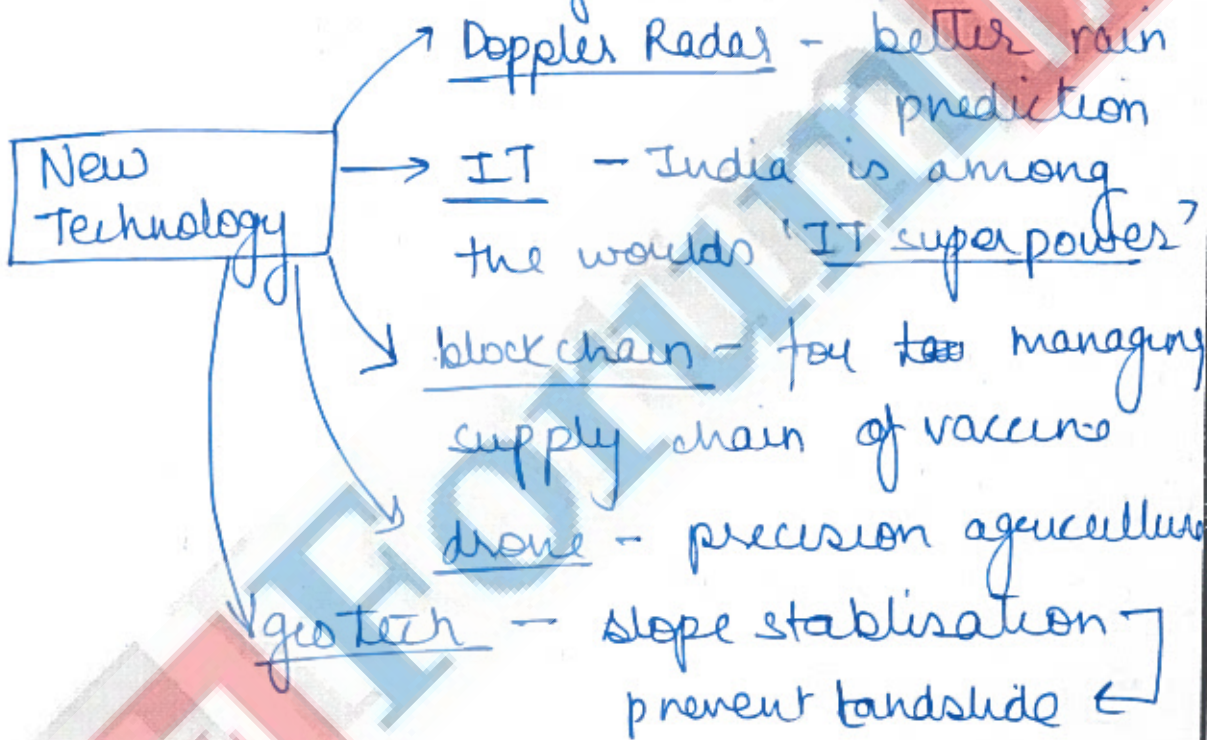 Doppler Radar - better rain
prediction
New
Technology
IT - India is among
the worlds 'IT superpower'
blockchain - for managing
supply chain of vaccine
drone - precision agriculture
geotech - slope stablisation
prevent landslide
Forum